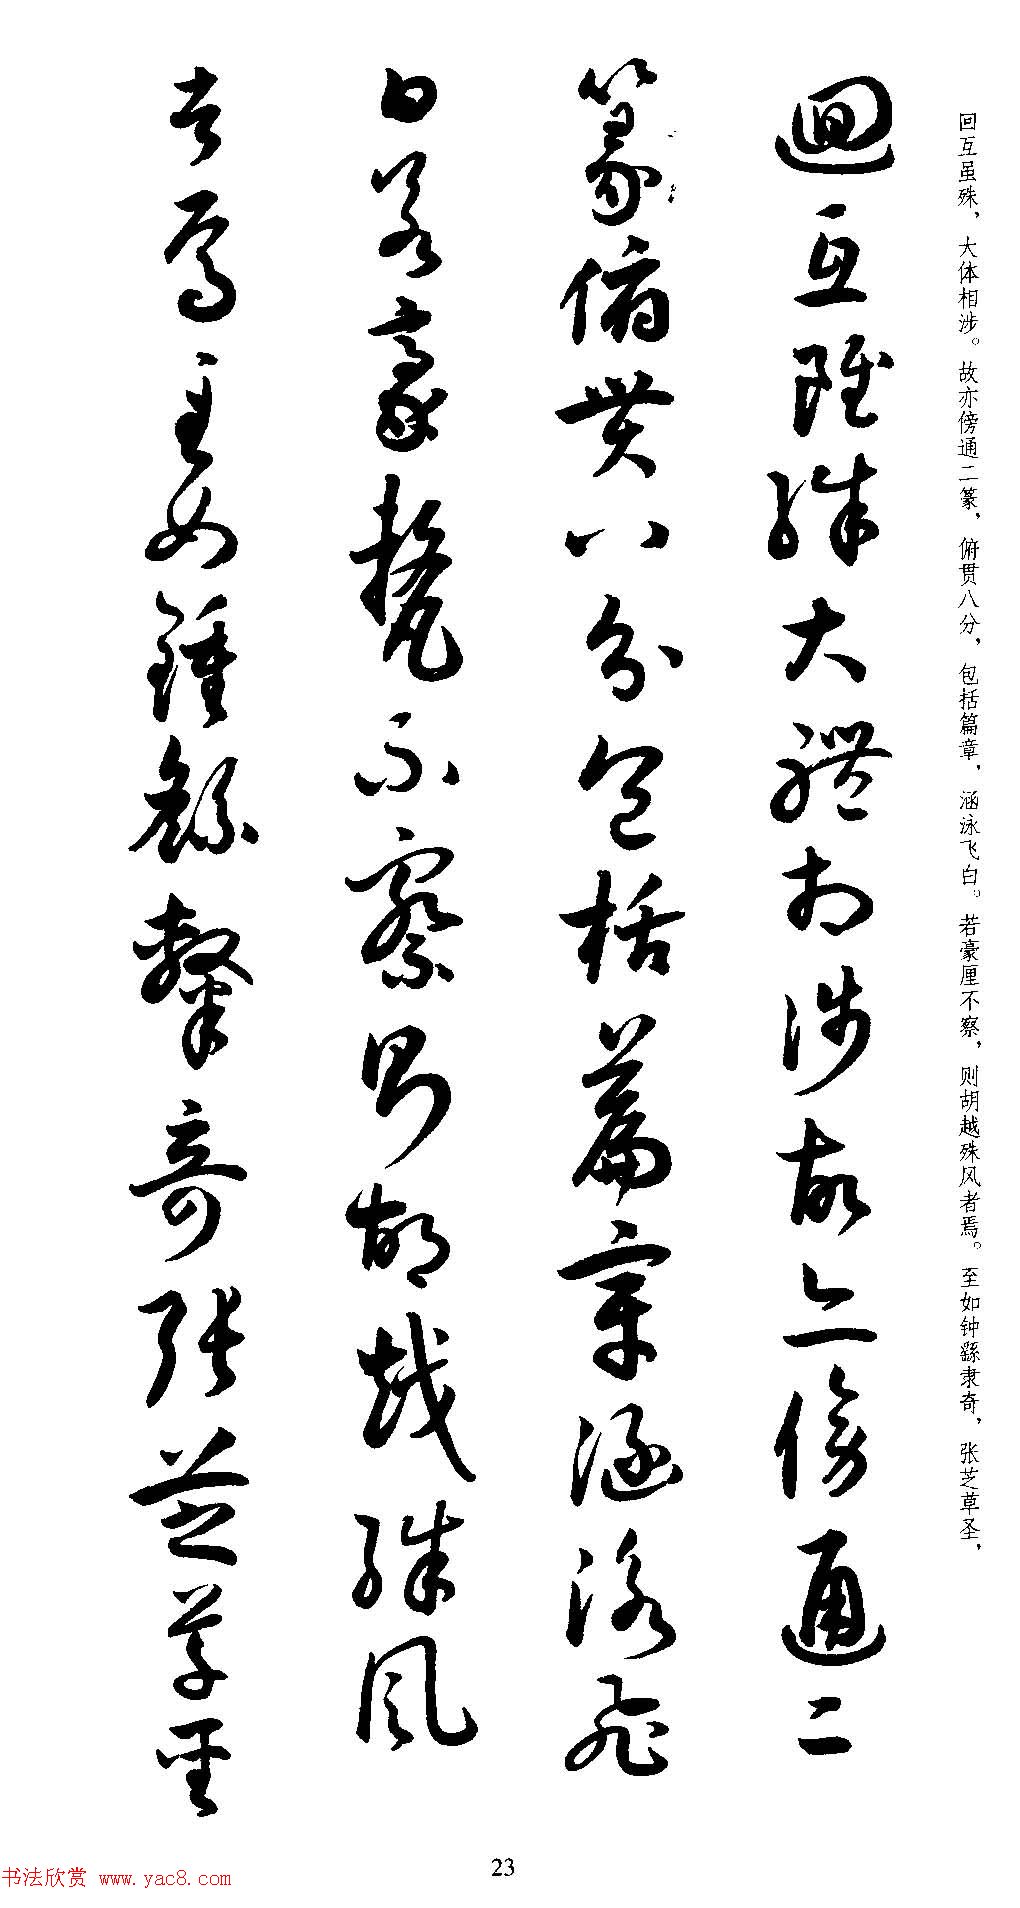 回互虽殊，大体相涉。故亦傍通二篆，俯贯八分，包括篇章，涵泳飞白。若豪厘不察，则胡越殊风者焉。至如钟繇隶奇，张芝草圣，
迴互雖殊大體相涉故亦傍通二
篆俯貫八分包括篇章涵泳飛
白若豪氂不察則胡越殊風
者焉至如鍾繇隸奇張芝草聖
23
书法欣赏 www.yac8.com